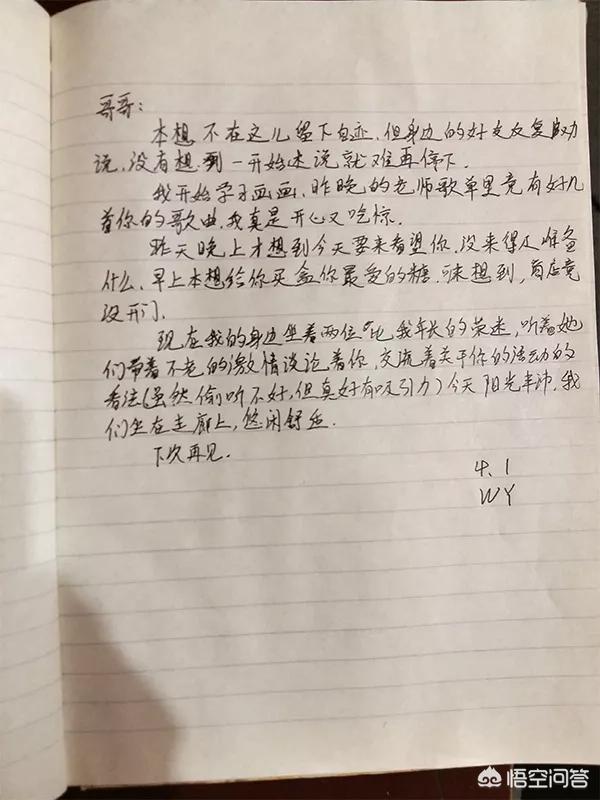 哥哥：
本想不在这儿留下白迹，但身边的好友反复劝
说，没有想到一开始述说就难再停下。
我开始学习画画，昨晚的老师歌单里竟有好几
首你的歌曲，我真是开心又吃惊。
昨天晚上才想到今天要来看望你，没来得及准备
什么，早上本想给你买盒你最爱的糖，未想到，商店竟
没开门。
现在我的身边坐着两位比我年长的荣迷，听着她
们带着不老的激情谈论着你，交流着关于你的活动的
看法（虽然偷听不好，但真好有吸引力）今天阳光丰沛，我
们坐在走廊上，悠闲舒适。
下次再见。
4.1
WY
悟空问答